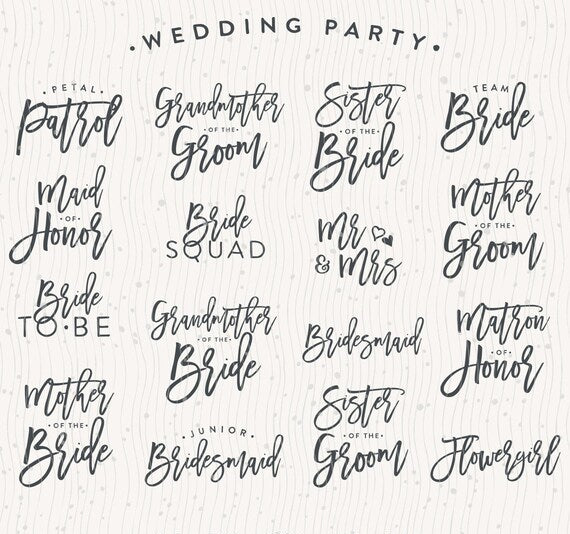 • WEDDING PARTY •
• PETAL •
Patrol
Grandmother
• OF THE •
Groom
Sister
• OF THE •
Bride
TEAM
Bride
Maid
• OF •
Honor
Bride
SQUAD
Mr
& Mrs
Mother
• OF THE •
Groom
Bride
TO•BE
Grandmother
• OF THE •
Bride
Bridesmaid
Matron
• OF •
Honor
Mother
• OF THE •
Bride
• JUNIOR •
Bridesmaid
Sister
• OF THE •
Groom
Flowergirl